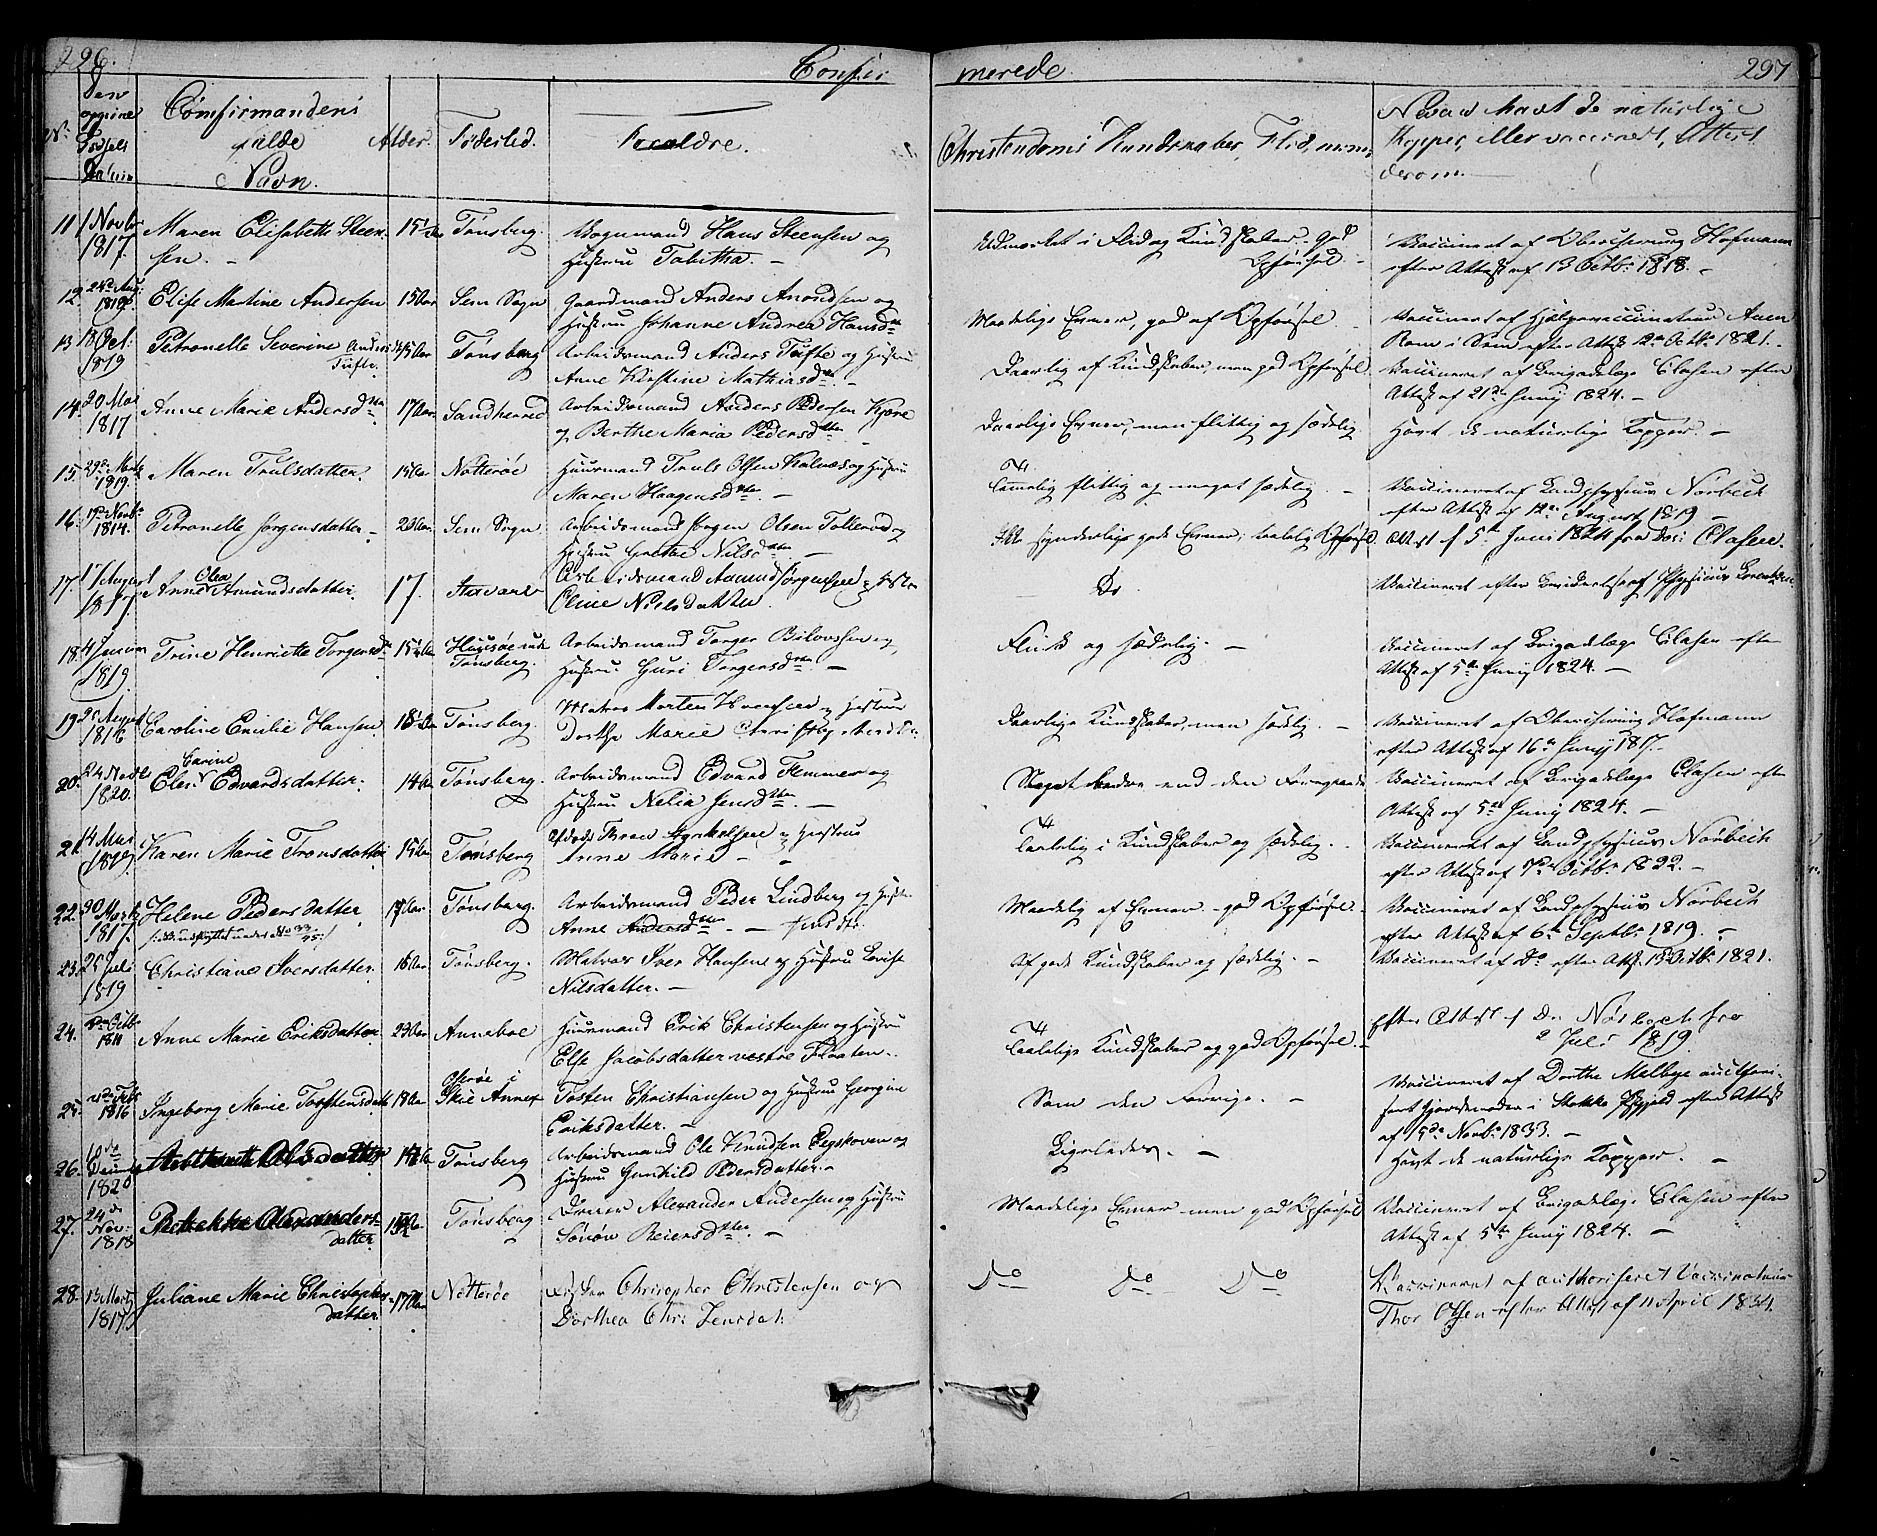 296.
Confir
merede
297
No. Den opgivne Fødsels Datum
Confirmandens fulde Navn.
Alder.
Fødested.
Forældre.
Christendoms Kundskaber, Flid, m.m.
Naar havt de naturlige Kopper, eller vaccineret, Attest derom.
11. 1 Novbr 1817. Maren Elisabeth Steensen. 15 1/2 Aar Tønsberg. Vognmand Hans Steensen og Hustru Tabitha. Udmærket i Flid og Kundskaber. God Opførsel. Vaccineret af Oberchirurg Hofmann efter Attest af 13 Octb: 1818.
12. 24de Aug: 1819 Elise Martine Andersen 15 Aar Sem Sogn Gaardmand Anders Amundsen og Hustru Johanne Andrea Hansdtr Maadelige Evner, god af Opførsel. Vaccineret af Hjelpevaccinateur Aven Rom i Sem efter Attest 12te Octb: 1821.
13 18 Oct: 1819 Petronelle Severine Andersd. Tufte. 15 Aar Tønsberg Arbeidsmand Anders Tufte og Hustru Anne Kirstine Mathiasdtr. Daarlig af Kundskaber, men god Opførsel. Vaccineret af Brigadelæge Clasen efter Attest af 21de Juny 1824.
14. 20 Mai 1817 Anne Marie Andersdtr 17 Aar Sandherred Arbeidsmand Anders Pedersen Kjære og Berthe Maria Pedersdtr. Daarlige Evner, men flittig og sædelig. Havt de naturlige Kopper.
15. 29de Martz 1819. Maren Trulsdatter. 15 Aar Nøtterøe Huusmand Truls Olsen Kalnes og Hustru Maren Haagensdtr. Temmelig flittig og meget sædelig. Vaccineret af Landphysicus Nørbech efter Attest af 12te August 1819
16. 19de Novbr 1814. Petronelle Jørgensdatter. 20 Aar. Sem Sogn. Arbeidsmand Jørgen Olsen Tollerød og Hustru Grethe Nilsdtr. Ikke synderlig gode Evner; taalelig Opførsel. Attest af 5te Juni 1824 fra Doc: Clasen.
17. 17 August 1817 Anne Olea Amundsdatter. 17. Stavarn Arbeidsmand Amund Jørgensen og Hustru Eline Nielsdatter. Do Vaccineret efter Beviis af Physicus
18. 4 Januar 1819 Trine Henriette Torgersdtr 15 Aar Huusøe ved Tønsberg. Arbeidsmand Torger og Hustru Guri Torgersdtr. Flink og sædelig. Vaccineret af Brigadelæge Clasen efter Attest af 5te Juny 1824.
19. 25 August 1816 Caroline Emilie Hansen 18 Aar Tønsberg. Matros Morten Hansen og Hustrue Dorthe Marie Daarlige Kundskaber, men sædelig. Vaccineret af Oberchirurg Hofmann efter Attest af 16de Juny 1817.
20. 24 1820. Elen Carine Edvardsdatter. 14 Aar Tønsberg. Arbeidsmand Edvard Femmer og Hustru Nelia Jensdtr. Meget bedre end den Foregaaende Vaccineret af Brigadelæge Clasen efter Attest af 5te Juny 1824.
21. 4 Mai 1819 Karen Marie Tronsdatter 15 Aar Tønsberg Afdøde Tron og Hustrue Anne Marie Taalelig i Kundskaber og sædelig. Vaccineret af Landphysicus Nørbech efter Attest af 7de Octb: 1822.
22. 30 Martz 1817. Helene Pedersdatter 17 Aar. Tønsberg. Arbeidsmand Peder Lindberg og Hustru Anne Andersdtr. Maadelig af Evner god Opførsel. Vaccineret af Landphysicus Nørbech efter Attest af 6te Septb: 1819.
23. 25 Juli 1819 Christiane Iversdatter. 15 Aar. Tønsberg. Matros Iver Hansen og Hustru Lovise Nilsdatter. Af gode Kundskaber og sædelig. Vaccineret af Do efter Attest 15 Octb: 1821.
24. Octbr 1811 Anne Marie Eriksdatter 23 Aar Anneboe Huusmand Erik Christensen og Hustru Else Jacobsdatter vestre Flaaten. Taalelige Kundskaber og god Opførsel. Efter Attest af Dr Nørbech fra 2 Juli 1819.
25. Febr 1816 Ingeborg Marie Tostensdatter 18 Aar Oserøe i Skie Annex Tosten Christiansen og Hustru Georgine Eriksdatter. Som den Forrige. Vaccineret af Dorthe Melbye authoriseret Gjordemoder i Stokke Præstegjeld efter Attest af 15de Novbr 1833.
26. 1820 Olsdatter 14 Aar Tønsberg Arbeidsmand Ole Knudsen Eegskoven og Hustru Gunhild Pedersdatter. Ligeledes. Havt de naturlige Kopper.
27. 24de Nov: 1818 Rebekka Alexandersdatter 15 Aar Tønsberg Alexander Andersen og Hustru Sønøv Reiersdtr. Maadelige Evner men god Opførsel Vaccineret af Brigadelæge Clasen efter Attest af 5te Juny 1824.
28. 13 Martz 1817. Juliane Marie Christophersdatter. 17 Aar Nøtterøe Fisker Christopher Christensen og Dorthea Chr: Jensdat: Do Do Do Vaccineret af authoriseret Vaccinateur Thor Olsen efter Attest af 11 April 1834.